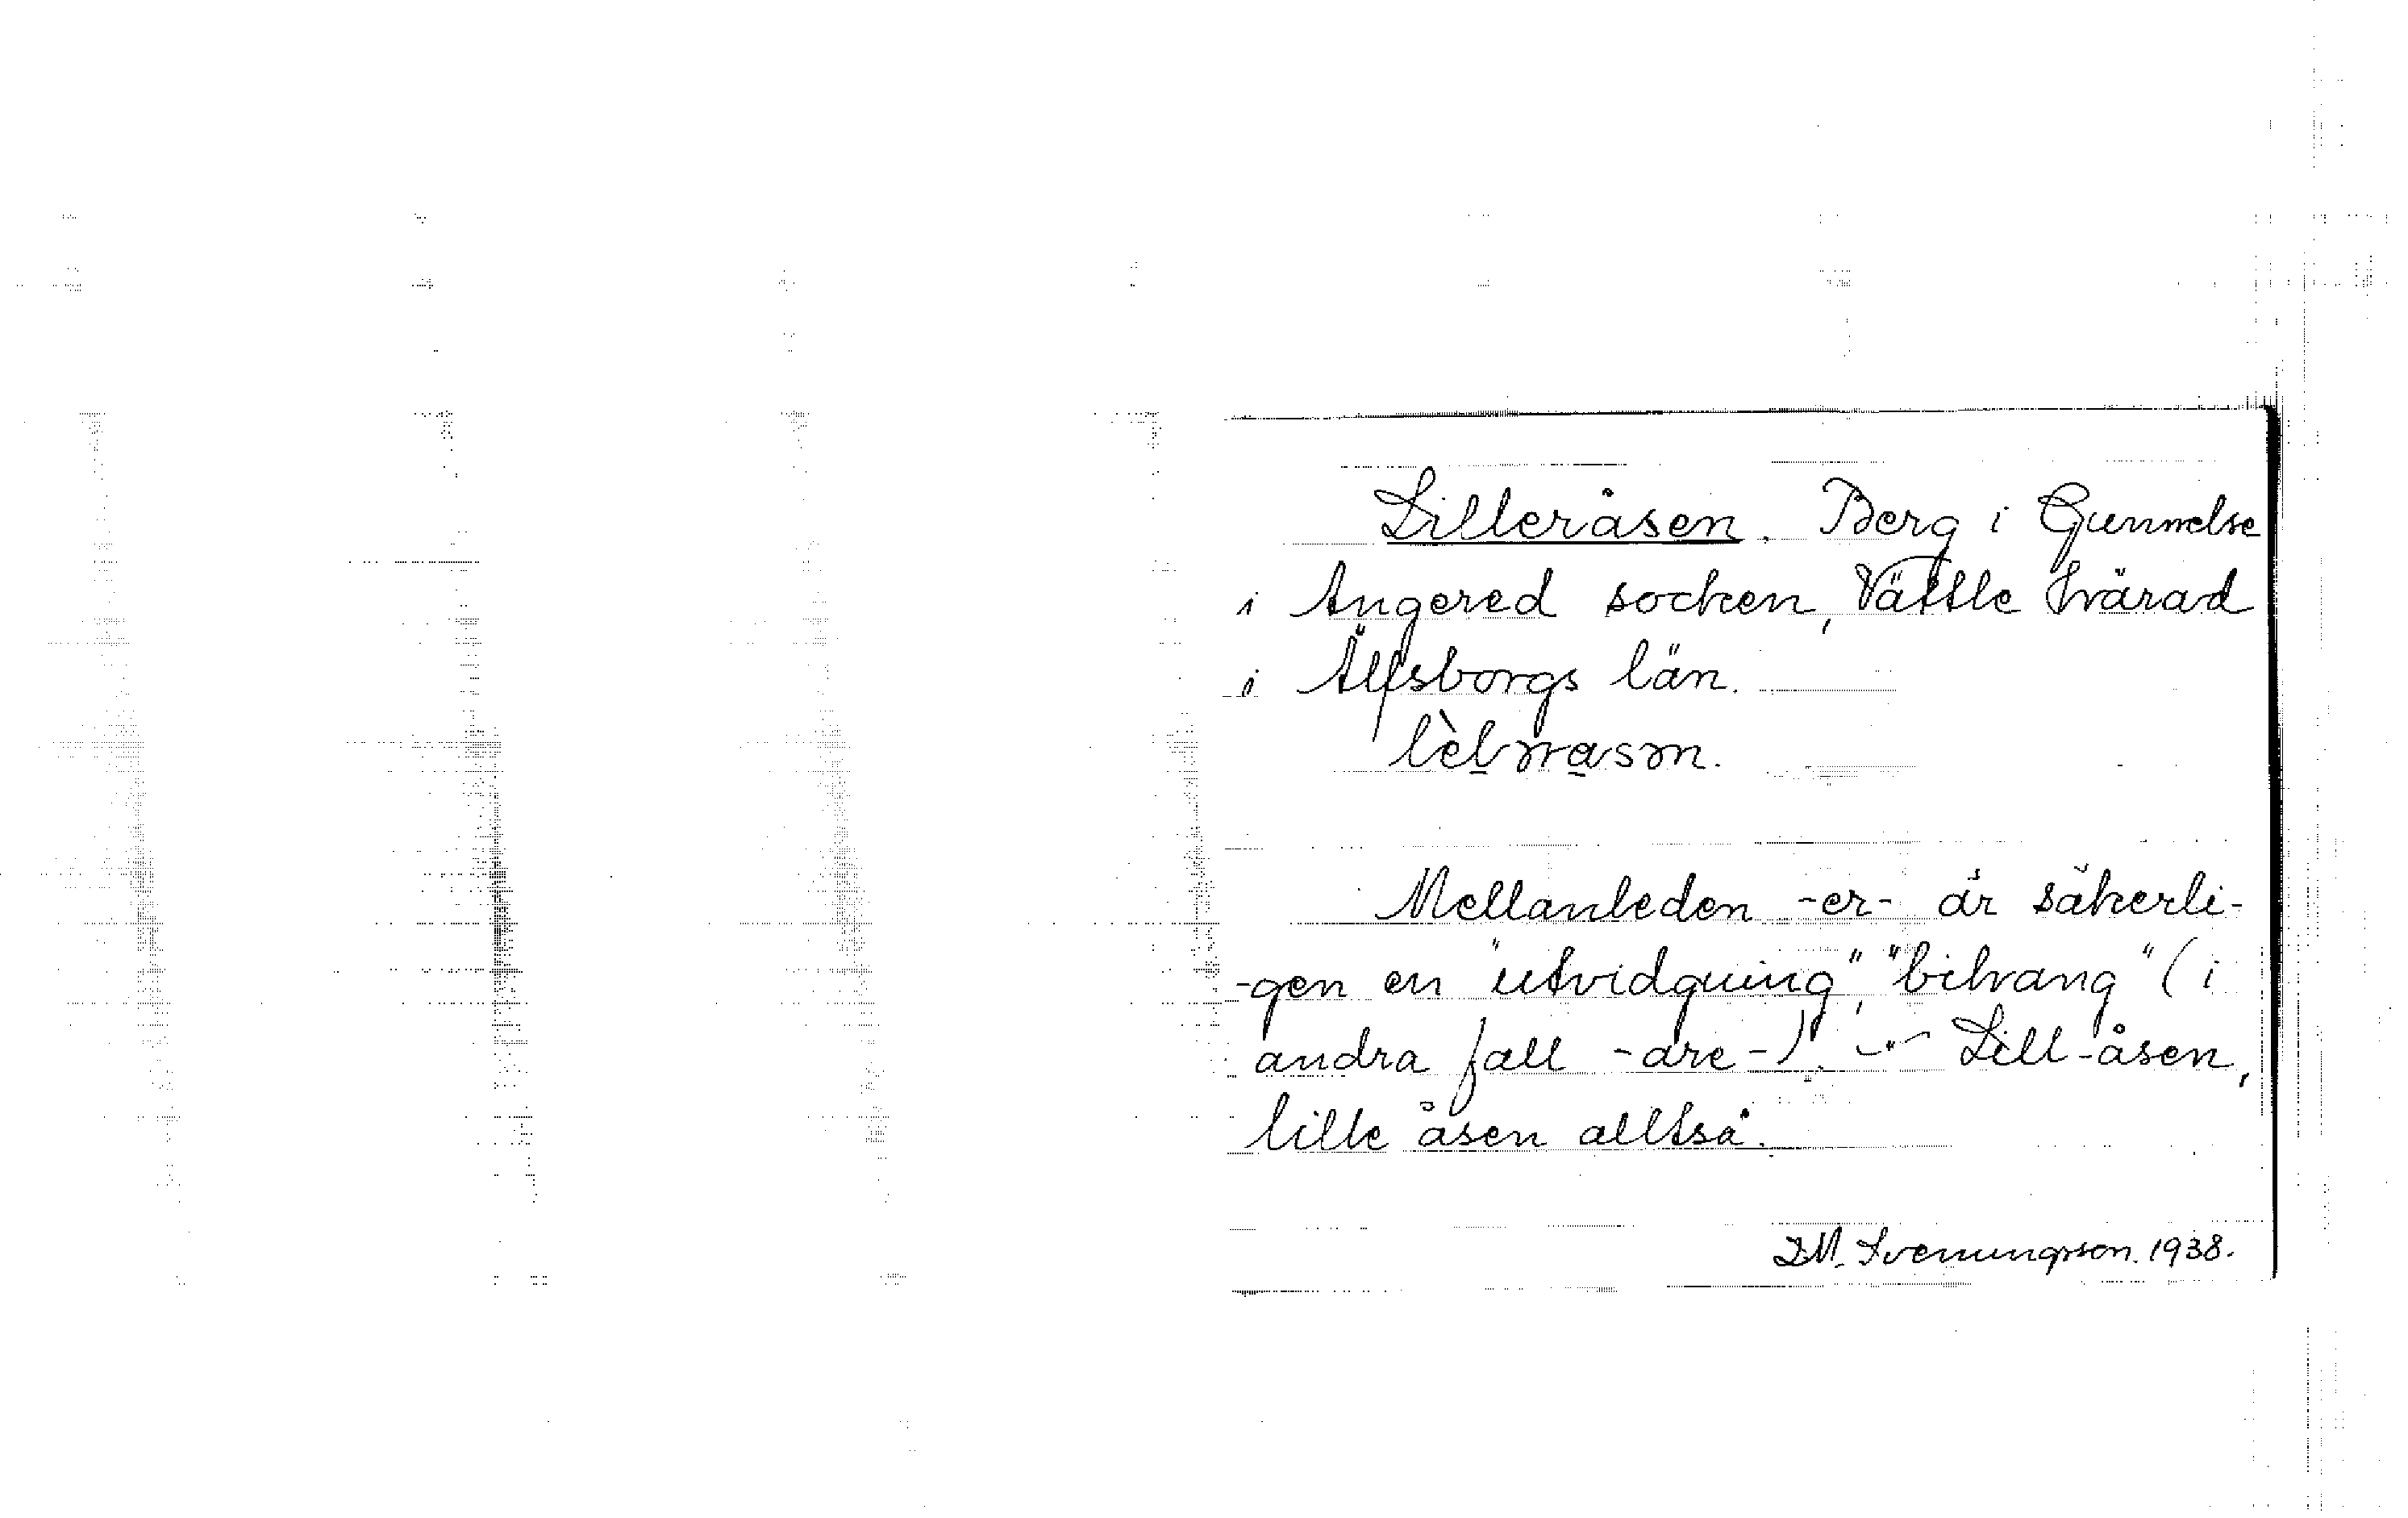 Lilleråsen. Berg i Gunnelse
i Angered socken, Vättle härad
i Älfsborgs län.
Mellanleden -er- är säkerli-
-gen en "utvidgning", "bihang" (i
andra fall -are-). Lill-åsen,
lille åsen alltså.
Svenungsson. 1938.